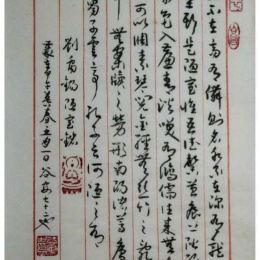 不在高有僊則名水不在深有龍
靈斯是陋室惟吾德馨苔痕上階
色入簾青談笑有鴻儒往來無
可以調素琴閱金經無絲竹之亂
無案牘之勞形南陽諸葛廬
蜀子雲亭孔子云何陋之有
劉禹錫陋室銘